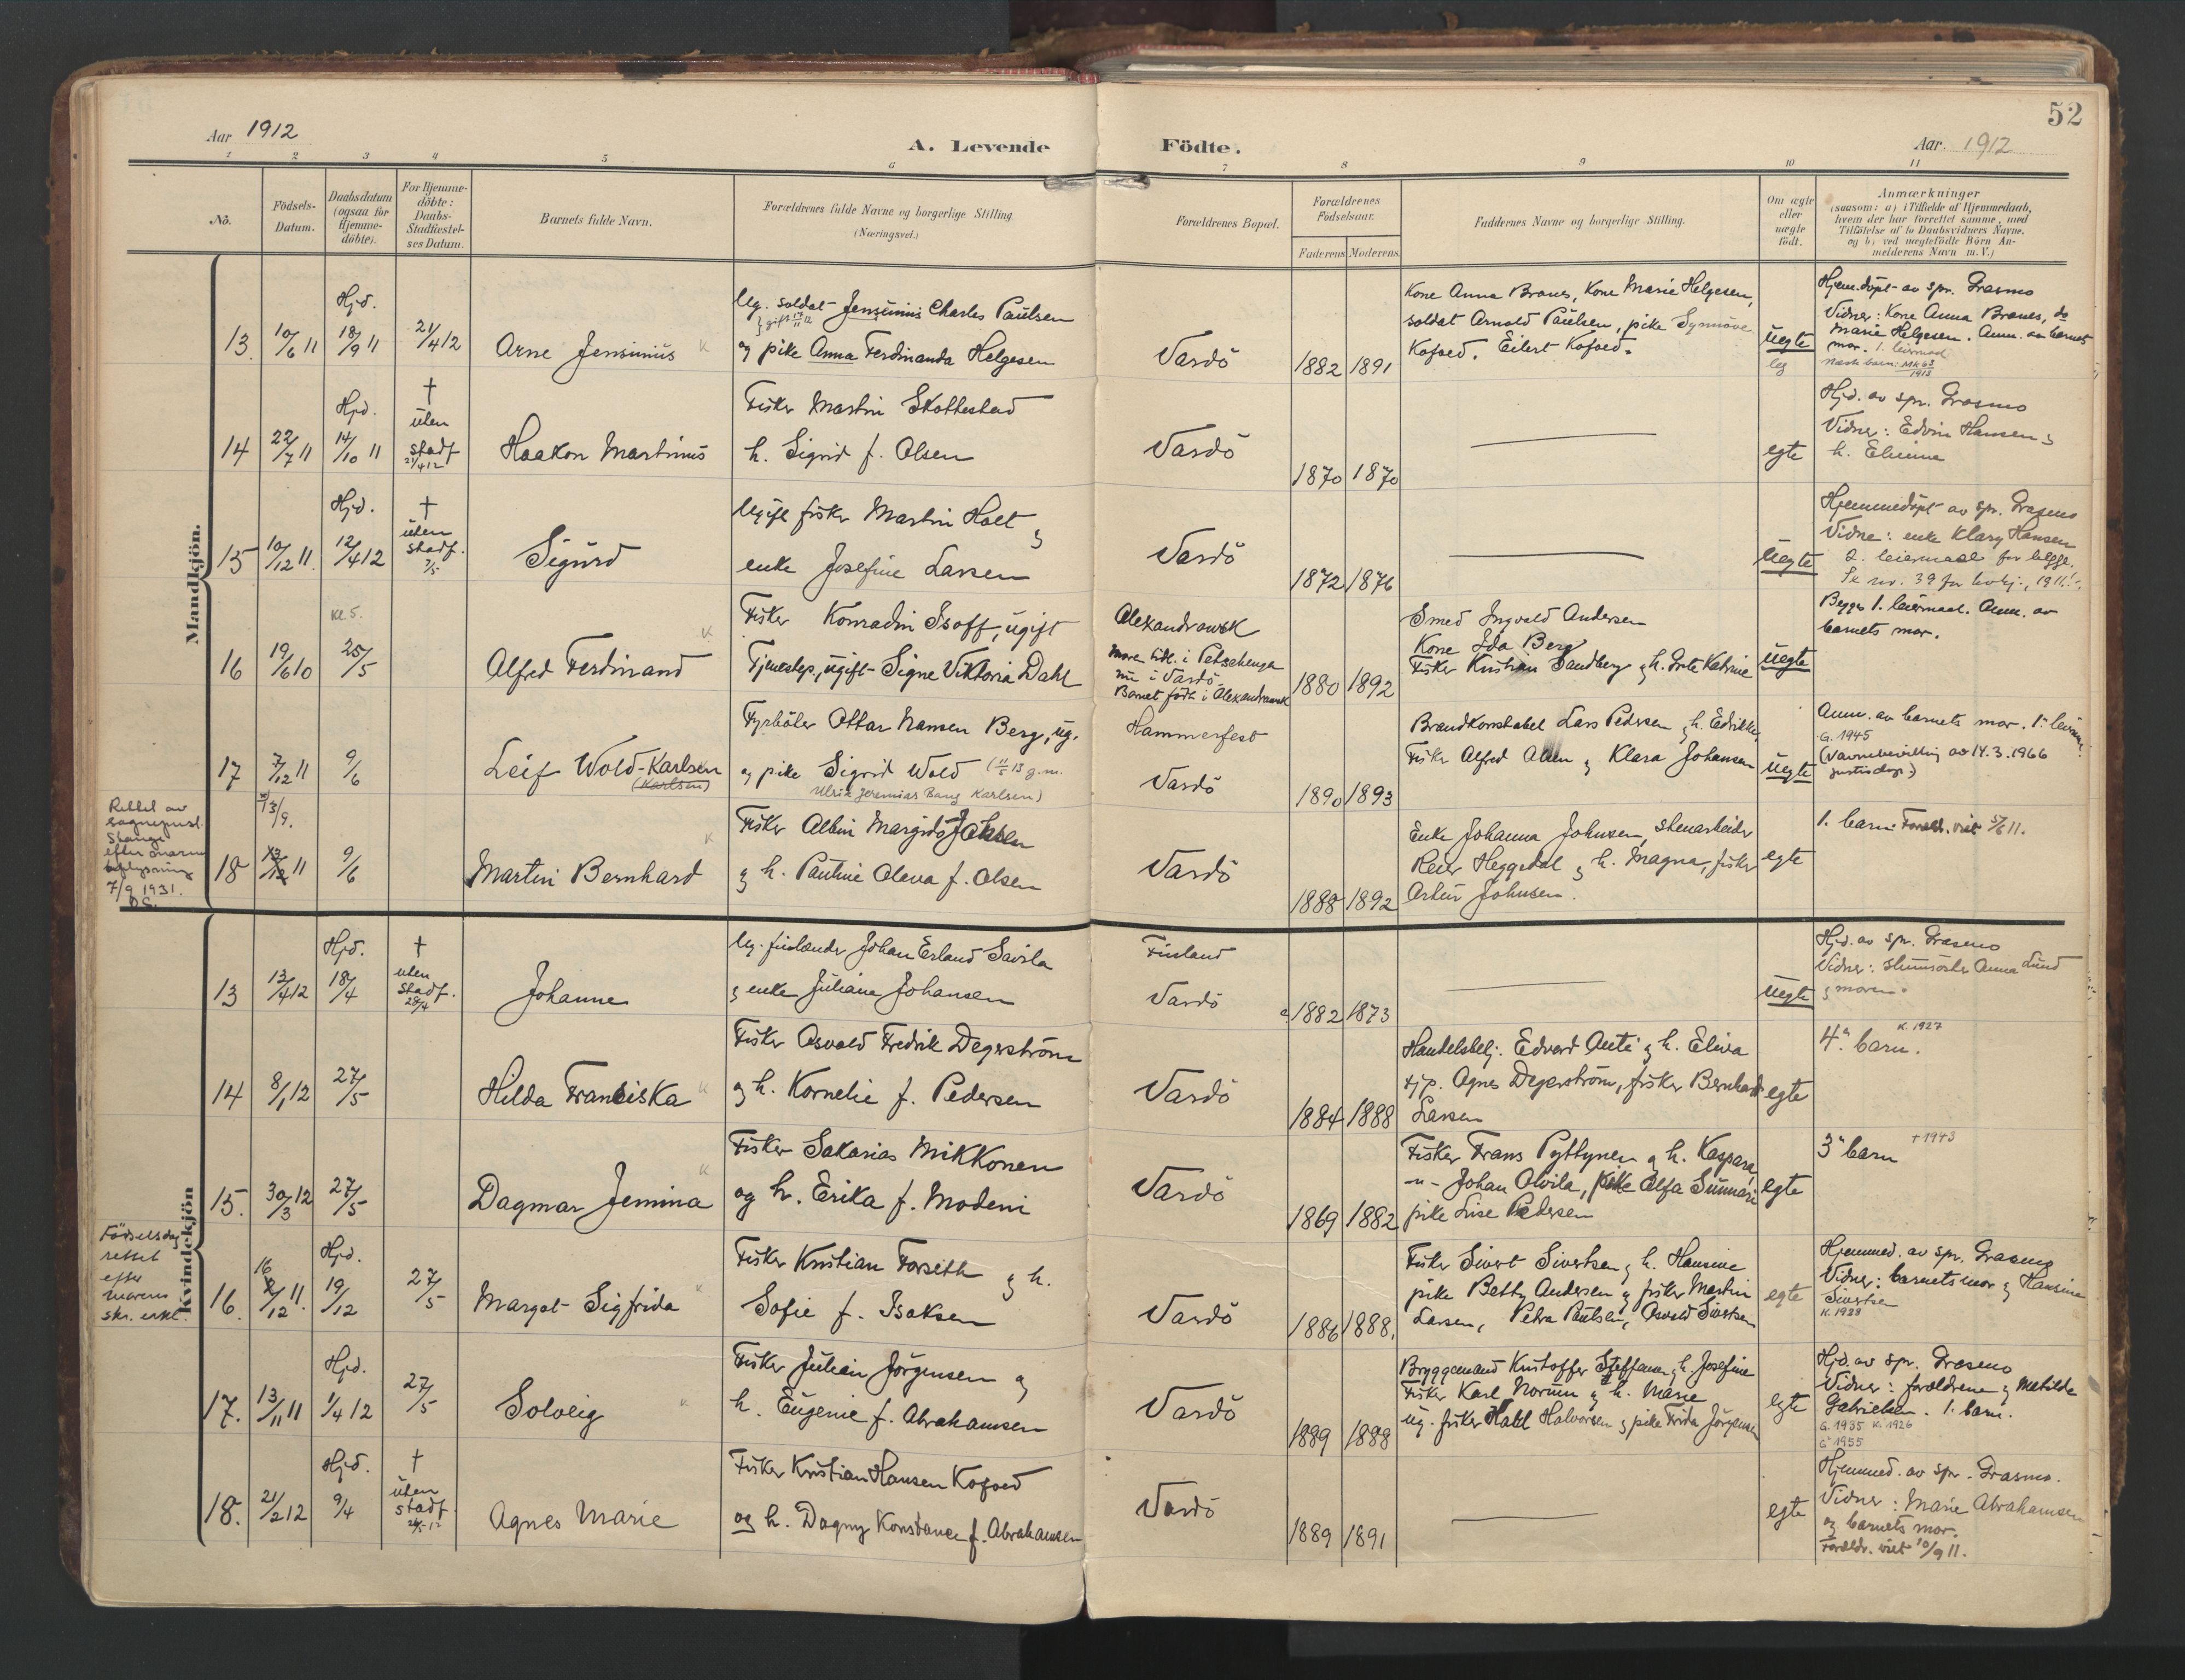 52
Aar 1912
A. Levende Födte.
Aar. 1912
1 2 3 4 5 6 7 8 9 10 11
No.
Födsels-
Datum.
Daabsdatum
(ogsaa for
Hjemme-
döbte).
For Hjemme-
döbte:
Daabs-
Stadfæstel-
ses Datum.
Barnets fulde Navn.
Forældrenes fulde Navne og borgerlige Stilling.
(Næringsvei.)
Forældrenes Bopæl.
Forældrenes
Födselsaar.
Faderens Moderens
Faddernes Navne og borgerlige Stilling.
Om ægte
eller
uægte
födt.
Anmærkninger
(saasom: a) i Tilfælde af Hjemmedaab,
hvem der har forrettet samme, med
Tilföielse af to Daabsvidners Navne.
og b) ved uægtefödte Börn An-
melderens Navn m. V.)
Mandkjön.
13. 10/6 11
Hjd.
18/9 11
21/4 12
Arne Jensinius
Ug. soldat Jensinius Charles Paulsen
gift 17/11 12
og pike Anna Ferdinanda Helgesen
Vardö
1882 1891
Kone Anna Branes, Kone Marie Helgesen,
soldat Arnold Paulsen, pike Synnöve
Kofoed. Eilert Kofoed.
uegte
leg
Hjem.döpt av spr. Grasmo
Vidner: Kone Anna Branes, do
Marie Helgesen. Anm. av barnets
mor. 1. leiermaal
14 22/7 11
Hjd.
14/10 11
†
uten
stadf.
21/4 12
Haakon Martinus
Fisker Martin Skottestad
h. Sigrid f. Olsen
Vardö
1870 1870
egte
Hjd. av spr. Grasmo
Vidner: Edvin Hansen g
h. Elienna
15 10/12 11.
Hjd.
12/4 12
†
uten
stadf.
7/5
Sigurd
Ugift fisker Martin Holt g
enke Josefine Larsen
Vardö
1872 1876
uegte
Hjemmedöpt av spr. Grasmo
Vidne: enke Klary Hansen
2. leiermaal for begge.
Se nr. 39 for kvkj., 1911.
16 19/6 10
kl 5.
25/5
Alfred Ferdinand
Fisker Konradin Isoff, ugift
Tjenestep., ugift Signe Viktoria Dahl
Alexandrowsk
Moren tidl. i Petschenga
nu i Vardö.
Barnet födt i Alexandrowsk
1880 1892
Smed Ingvald Andersen
Kone Ida Berg
Fisker Kristian Sandberg g h. Grete Katrine
uegte
Begges 1. leiermaal. Anm. av
barnets mor.
17 7/12 11
9/6
Leif Wold-Karlsen
(Karlsen)
Fyrböter Ottar Nansen Berg, ug.
og pike Sigrid Wold (11/5 13 g.m.
Ulrik Jeremias Bang Karlsen)
Hammerfest
Vardö
1890 1893
Brandkonstabel Lars Pedersen g h. Edrikke,
Fisker Alfred Olsen g Klara Johansen
uegte
Anm. av barnets mor. 1. leierm.
G. 1945
(Navnebevilling av 14.3.1966
justisdep.)
Rettet av
sogneprest
Stange
efter morens
oplysning
7/9 1931.
18 13/9. 11
9/6
Martin Bernhard
Fisker Albin Margido Johnsen
g h. Pauline Oleva f. Olsen
Vardö
1888 1892
Enke Johanna Johnsen, stenarbeider
Reier Heggedal g h. Magna, fisker
Artur Johnsen.
egte
1. barn. Foræld. viet 5/6 11.
Kvindekjön
13 13/4 12
Hjd.
18/4
†
uten
stadf.
28/4
Johanne
Ug. finlænder Johan Erland Savila
g enke Juliane Johansen
Finland
Vardö
1882 1873
uegte
Hjd. av spr. Grasmo
Vidner: Anna Lund
g moren.
14 8/1 12
27/5
Hilda Franciska
Fisker Osvald Fredrik Degerström
og h. Kornelie f. Pedersen
Vardö
1884 1888
Handelsbetj. Edvard Anti g h. Eliva
tjp. Agnes Degerström, fisker Bernhard
Larsen
egte
4. barn.
K. 1927
15. 30/3 12
27/5
Dagmar Jemina
Fisker Sakarias Mikkonen
og h. Erika f. Modeni
Vardö
1869 1882
Fisker Frans Pyttynen g h. Kaspara,
-"- Johan Olvila, pike Alfa Sumari
pike Lise Pedersen
egte
3. barn
† 1943
Födselsdag
rettet
efter
morens
skr. erkl.
16. 16/12 11.
Hjd.
19/12
27/5
Margot Sigfrida
Fisker Kristian Forseth g h.
Sofie f. Isaksen
Vardö
1886 1888.
Fisker Sivert Sivertsen g h. Hansine
pike Betty Andersen g fisker Martin
Larsen, Petra Paulsen, Osvald Sivertsen
egte
Hjemmed. av spr. Grasmo
Vidner: barnets mor g Hansine
Sivertsen
K. 1928
17. 13/11 11
Hjd.
1/4 12
27/5
Solveig
Fisker Julian Jörgensen og
h. Eugenie f. Abrahamsen
Vardö
1889 1888
Bryggemand Kristoffer Steffensen g h. Josefine
Fisker Karl Norum g h. Marie
ug. fisker Halvorsen g pike Frida Jörgensen
egte
Hjd. av spr. Grasmo
Vidner: forældrene g Matilde
Gabrielsen. 1. barn.
G. 1935 K. 1926
G. 1955
18. 21/2 12
Hjd.
9/4
†
uten
stadf.
Agnes Marie
Fisker Kristian Hansen Kofoed
og h. Dagny Konstance f. Abrahamsen
Vardö
1889 1891
egte
Hjemmed. av spr. Grasmo.
Vidner: Marie Abrahamsen
og barnets mor.
Foreldr. viet 10/9 11.